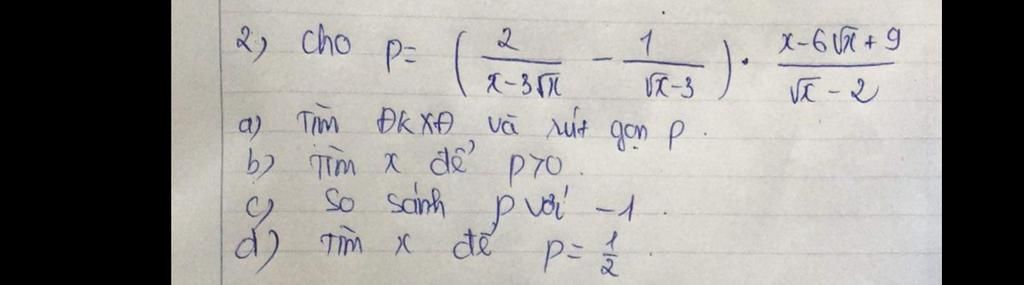 2, Cho P= ( 2/(x-3√x) - 1/(√x-3) ) . (x-6√x+9)/(√x-2)
a) Tìm ĐKXĐ và rút gọn P.
b) Tìm x để P>0.
c) So sánh P với -1.
d) Tìm x để P= 1/2.